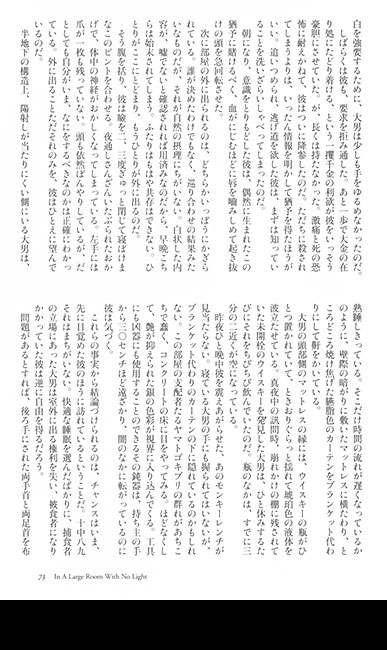 白を強要するために、大男は少しも手をゆるめなかったのだ。
しばらくは彼も、要求を拒み通した。あと一歩で大金の在
り処にたどり着ける、という一攫千金の利欲が彼をいっそう
豪胆にさせていた。が、長くは持たなかった。激痛と死の恐
怖に耐えかねて、彼はついに降参したのだ。ただちに殺され
てしまうよりは、いったん情報を明かして猶予を得たほうが
いい。追いつめられ、逃げ道を欲した彼は、まずは知ってい
ることを洗いざらいしゃべってしまったのだ。
朝になり、意識をとりもどした彼は、偶然に生まれたこの
猶予に賭けるべく、血がにじむほどに唇を嚙みしめて起き抜
けの頭を急回転させた。
次に部屋の外に出られるのは、どちらかいっぽうにかぎら
れている。誰が決めたわけでもなく、巡り合わせの結果みた
いなものだが、それが自然の摂理にちがいない。白状した内
容が、嘘でないと確認されれば用済みなのだから、早晩こち
らは始末されてしまう。ふたりはもはや共存はできない。ひ
とりがここにとどまり、もうひとりが外に出るのだ。
そう腹を括り、彼は瞼を二、三度ぎゅっと閉じて寝ぼけま
なこのピントを合わせる。夜通しさんざんいたぶられたおか
げで、体中の神経がおかしくなってしまっている。左手には
爪が一枚も残っていない。頭も依然ぼんやりしているが、だ
としても自分がいま、なにをするべきなのかは正確にわかっ
ている。外に出ることただそれのみを、彼はひとえに望んで
いるのだ。
半地下の構造上、陽射しが当たりにくい側にいる大男は、
熟睡しきっている。そこだけ時間の流れが遅くなっているか
のように、壁際の暗がりに敷いたマットレスに横たわり、と
ころどころ焼け焦げた臙脂色のカーテンをブランケット代わ
りにして鼾をかいている。
大男の頭部側のマットレスの縁には、ウイスキーの瓶がひ
とつ置かれていて、ときおりぐらっと揺れて琥珀色の液体を
波立たせている。真夜中の訊問時、崩れかけの棚に残されて
いた未開栓のウイスキーを発見した大男は、ひと休みするた
びにそれをちびちび飲んでいたのだ。瓶のなかは、すでに三
分の二近くが空になっている。
昨夜ひと晩中彼を震えあがらせた、あのモンキーレンチが
見当たらない。寝ている大男の手にも握られてはいないが、
ブランケット代わりのカーテンの下に隠れているのかもしれ
ない。この部屋の支配者たるヤマトゴキブリの群れがあちこ
ちで蠢く、コンクリートの床に目をやってみる。ほどなくし
て、艶が抑えられた銀の色彩が視界に入り込んでくる。工具
にも凶器にも使用することのできるその鈍器は、持ち主の手
から三〇センチほど遠ざかり、闇のなかに転がっているのに
彼は気づく。
これらの事実から結論づけられるのは、チャンスはいま、
先に目覚めた彼のほうに訪れているということだ。十中八九
それはまちがいない。快適な睡眠を選んだばかりに、捕食者
の立場にあった大男は室外に出る権利を失い、被食者になり
かかっていた彼は逆に自由を得るだろう。
問題があるとすれば、後ろ手にされた両手首と両足首を布
73 In A Large Room With No Light